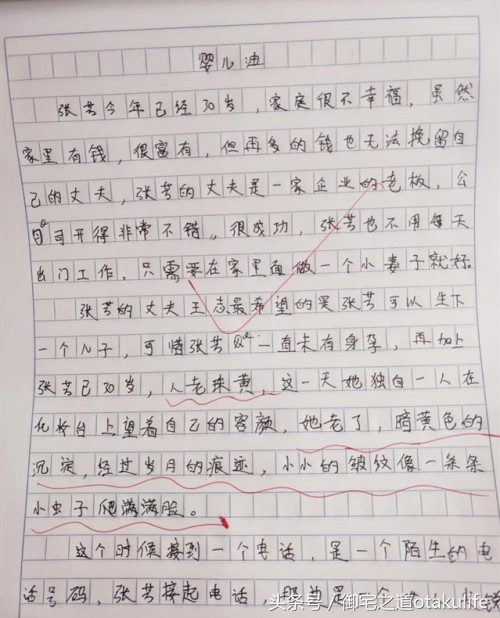 婴儿油
张芸今年已经30岁，家庭很不幸福，虽然
家里有钱，很富有，但再多的钱也无法挽留自
己的丈夫，张芸的丈夫是一家企业的老板，公
司开得非常不错，很成功，张芸也不用每天
出门工作，只需要在家里面做一个小妻子就好。
张芸的丈夫王志最希望的是张芸可以生下
一个儿子，可惜张芸一直未有身孕，再加上
张芸已30岁，人老珠黄，这一天她独自一人在
化妆台上望着自己的容颜，她老了，暗黄色的
沉淀，经过岁月的痕迹，小小的皱纹像一条条
小虫子爬满满脸。
这个时候接到一个电话，是一个陌生的电
话号码，张芸接起电话，
头条号／御宅之道otakulife